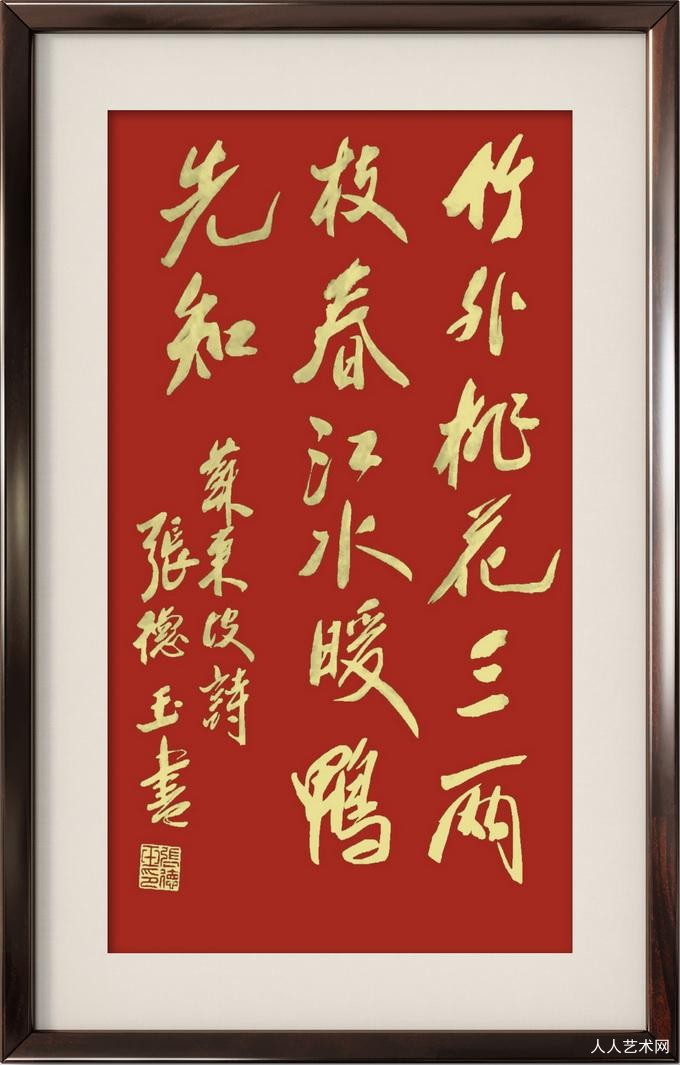 竹外桃花三两
枝春江水暖鸭
先知
蘇東坡詩
張德玉書
張德玉印
人人艺术网